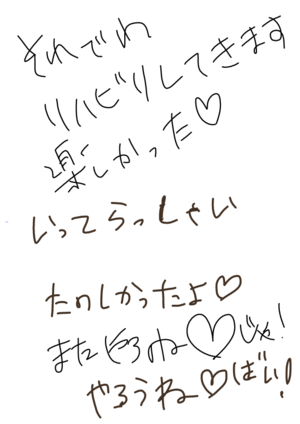 それでわ
リハビリしてきます
楽しかった♡
いってらっしゃい
たのしかったよ♡
またやろね♡じゃ!
やろうね♡ばい!